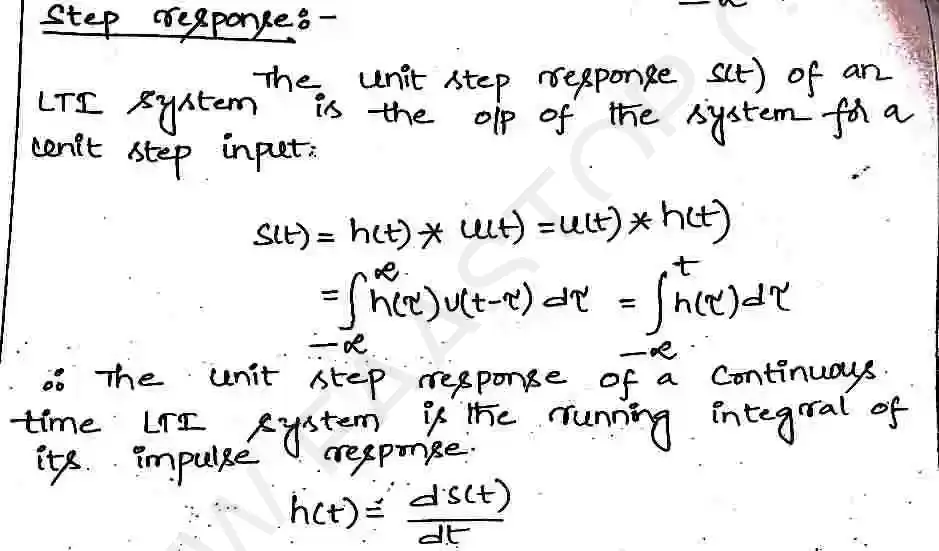 Step response:-
The unit step response s(t) of an
LTI system is the o/p of the system for a
unit step input:
s(t) = h(t) * u(t) = u(t) * h(t)
= ∫_{-∞}^{∞} h(τ) u(t-τ) dτ = ∫_{-∞}^{t} h(τ) dτ
∴ The unit step response of a Continuous
time LTI system is the running integral of
its impulse response.
h(t) = ds(t)/dt